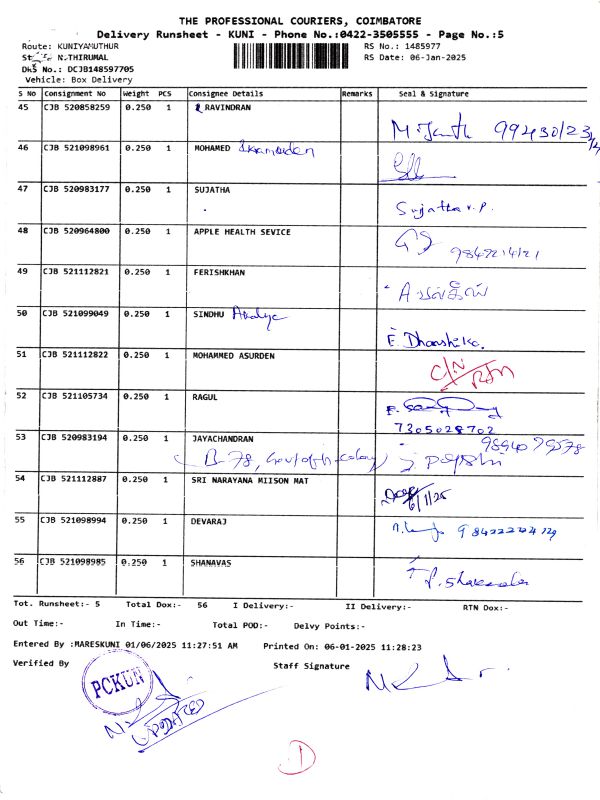 THE PROFESSIONAL COURIERS, COIMBATORE
Delivery Runsheet - KUNI - Phone No.:0422-3505555 - Page No.:5
Route: KUNIYAMUTHUR RS No.: 1485977
N.THIRUMAL RS Date: 06-Jan-2025
DRS No.: DCJB148597705
Vehicle: Box Delivery
S No Consignment No Weight PCS Consignee Details Remarks Seal & Signature
45 CJB 520858259 0.250 1 RAVINDRAN
46 CJB 521098961 0.250 1 MOHAMED
47 CJB 520983177 0.250 1 SUJATHA Sujatha v.p.
48 CJB 520964800 0.250 1 APPLE HEALTH SEVICE
49 CJB 521112821 0.250 1 FERISHKHAN
50 CJB 521099049 0.250 1 SINDHU
E. Dharshika.
51 CJB 521112822 0.250 1 MOHAMMED ASURDEN C/N RTN
52 CJB 521105734 0.250 1 RAGUL
7305028702
53 CJB 520983194 0.250 1 JAYACHANDRAN
B-78,
54 CJB 521112887 0.250 1 SRI NARAYANA MIISON MAT 6/1/25
55 CJB 521098994 0.250 1 DEVARAJ
56 CJB 521098985 0.250 1 SHANAVAS
Tot. Runsheet:- 5 Total Dox:- 56 I Delivery:- II Delivery:- RTN Dox:-
Out Time:- In Time:- Total POD:- Delvy Points:-
Entered By :MARESKUNI 01/06/2025 11:27:51 AM Printed On: 06-01-2025 11:28:23
Verified By Staff Signature
PCKUN
1